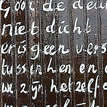 Gooi de deur
niet dicht
er is geen vers
tussen hen en
we zijn hetzelf